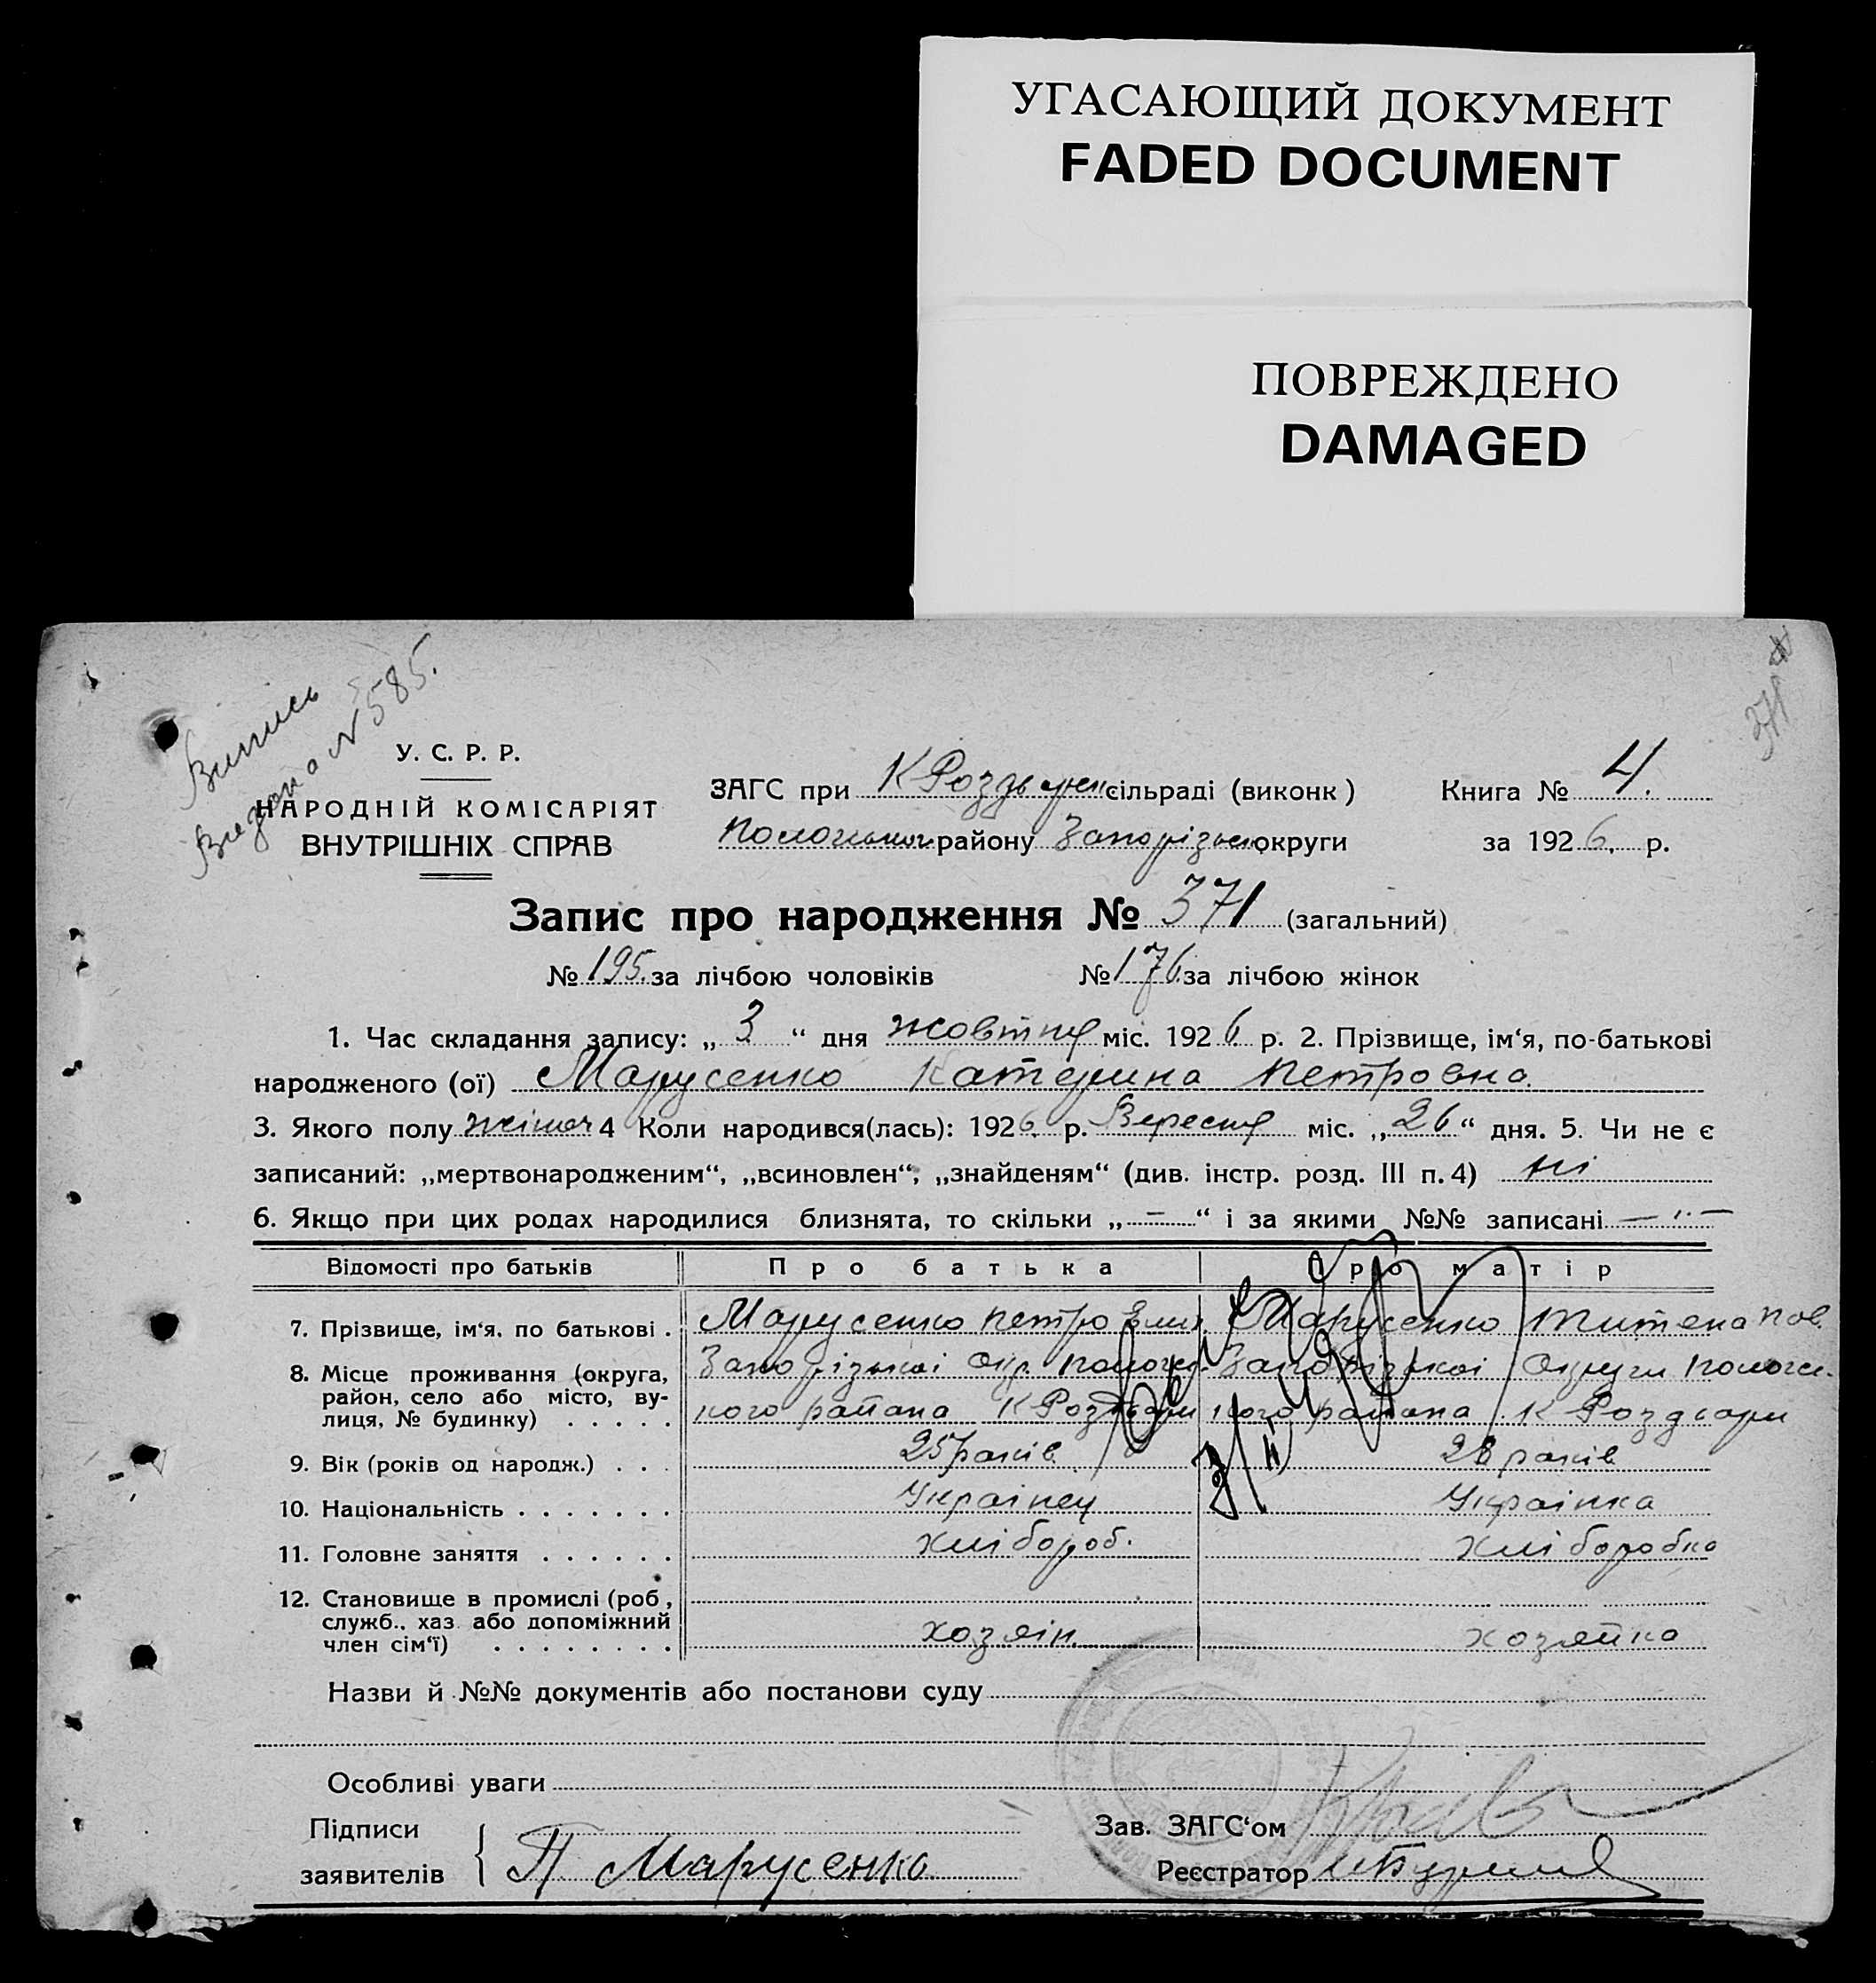 УГАСАЮЩИЙ ДОКУМЕНТ
FADED DOCUMENT
ПОВРЕЖДЕНО
DAMAGED
Випись
Видано N 585.
371
У. С. Р. Р.
НАРОДНІЙ КОМІСАРІЯТ
ВНУТРІШНІХ СПРАВ
ЗАГС при К Роздорен сільраді (виконк) Книга № 4.
району округи за 1926. р.
Запис про народження № 371 (загальний)
№ 195. за лічбою чоловіків № 176. за лічбою жінок
1. Час складання запису: „ 3 “ дня жовтня міс. 1926. р. 2. Прізвище, ім‘я, по-батькові
народженого (ої) Марусенко Катерина Петровна
3. Якого полу жіноч 4 Коли народився(лась): 1926. р. Вересня міс. „ 26 “ дня. 5. Чи не є
записаний: „мертвонародженим“, „всиновлен“, „знайденям“ (див. інстр. розд. III п. 4) ні
6. Якщо при цих родах народилися близнята, то скільки „ – “ і за якими №№ записані – „ –
Відомості про батьків Про батька Про матір
7. Прізвище, ім‘я, по батькові . Марусенко Петро Марусенко
8. Місце проживання (округа, Запорізької Окр. Пологов- Запорізької Округи Пологов-
район, село або місто, ву-
лиця, № будинку) . . . . . кого района К Роздори кого района К Роздори
9. Вік (років од народж.) . . . 25 років 28 років
10. Національність . . . . . . . Українец Українка
11. Головне заняття . . . . . . хлібороб. хліборобка
12. Становище в промислі (роб,
служб., хаз або допоміжний
член сім‘ї) . . . . . . . . хозяін. хозяйка
Назви й №№ документів або постанови суду
Особливі уваги
Підписи
заявителів П Марусенко
Зав. ЗАГС‘ом
Реєстратор